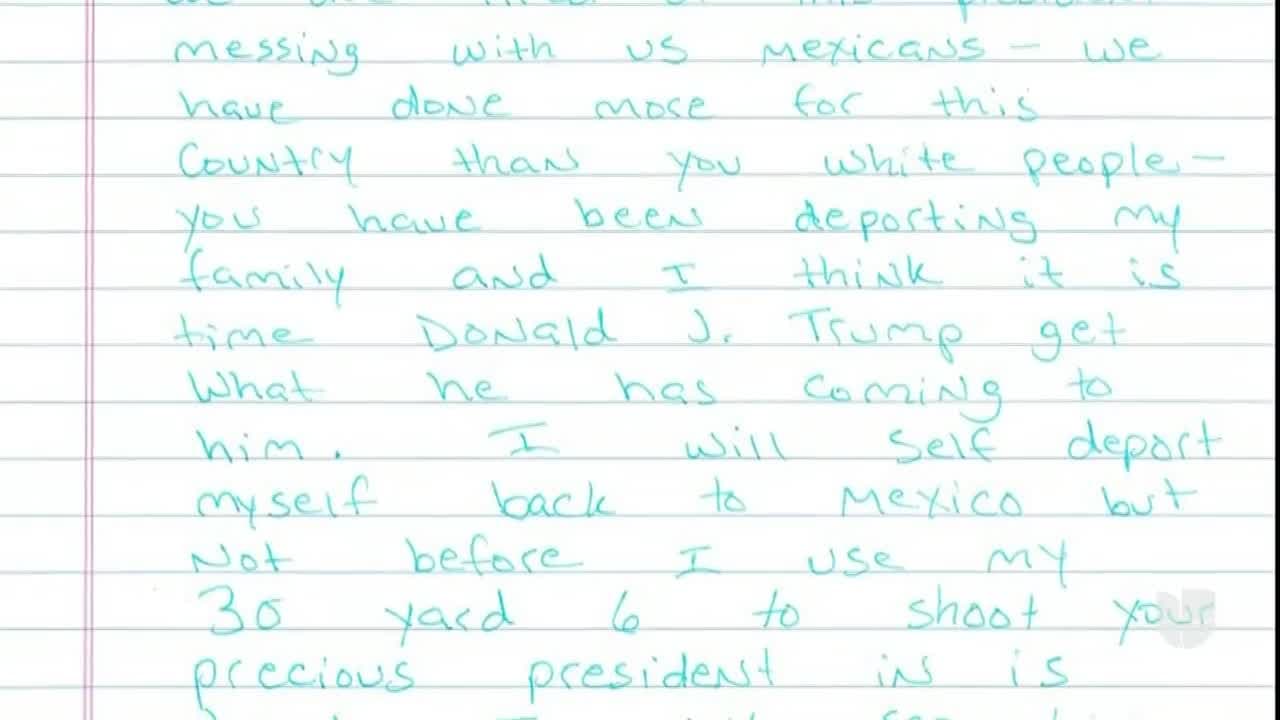 messing with us mexicans - we
have done more for this
Country than you white people -
you have been deporting my
family and I think it is
time Donald J. Trump get
What he has coming to
him. I will self deport
myself back to Mexico but
Not before I use my
30 yard 6 to shoot your
precious president in is